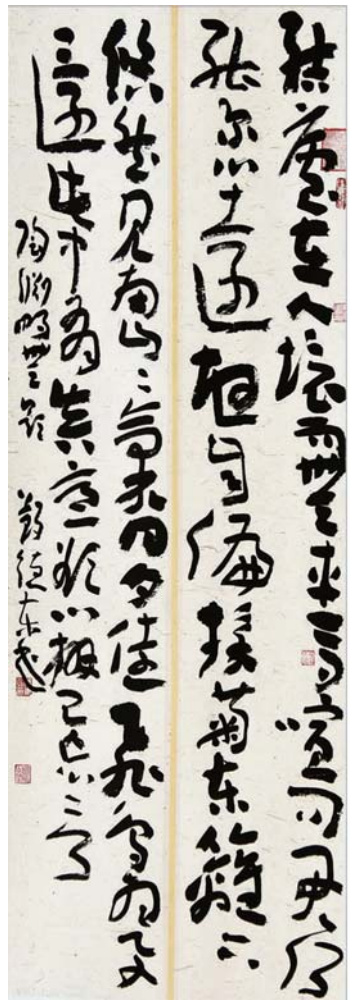 結廬在人境而無車馬喧問君何
能尔心遠地自偏採菊東籬下
悠然見南山〻氣日夕佳飛鳥相與
還此中有真意欲辨已忘言
陶渊明無题